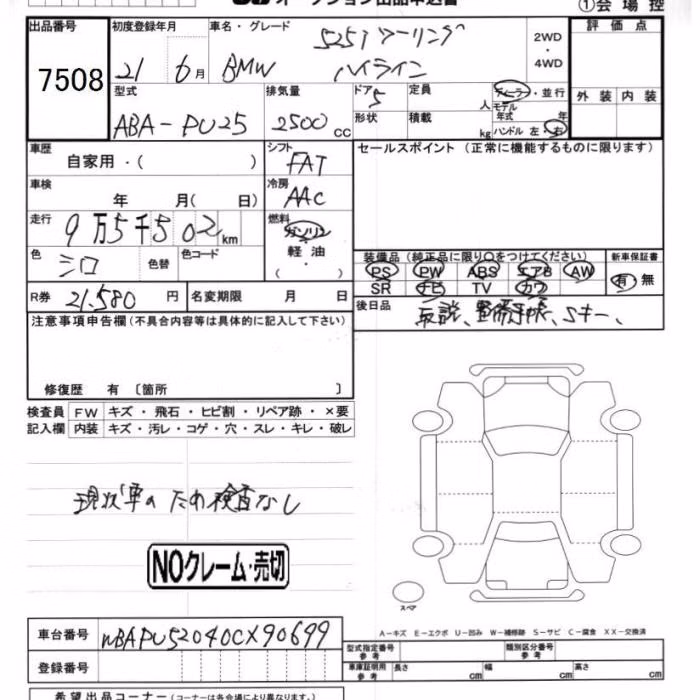 オークション出品申込書 ①会場控
出品番号 初度登録年月 車名・グレード 評価点
7508 21 6月 BMW 525i ツーリング ハイライン 2WD・4WD
型式 排気量 ドア 定員 ディーラー・並行 外装 内装
ABA-PU25 2500cc 5 人 モデル年式 年
形状 積載 kg ハンドル 左・右
車歴 シフト セールスポイント (正常に機能するものに限ります)
自家用・( ) FAT
車検 冷房
年 月( 日) AAC
走行 燃料
9万5千502km ガソリン
色 色替 色コード 軽油 装備品(純正品に限り○をつけてください) 新車保証書
シロ ・( ) PS PW ABS エアB AW 有・無
SR ナビ TV カワ
R券 21.580円 名変期限 月 日 後日品 取説、整備手帳、Sキー、
注意事項申告欄(不具合内容等は具体的に記入して下さい)
修復歴 有 〔箇所 〕
検査員 FW キズ・飛石・ヒビ割・リペア跡・×要
記入欄 内装 キズ・汚レ・コゲ・穴・スレ・キレ・破レ
現状車のため検査なし
NOクレーム・売切
スペア
A-キズ E-エクボ U-凹み W-補修跡 S-サビ C-腐食 XX-交換済
車台番号 WBAPU52040CX90699 型式指定番号 参考 類別区分番号 参考
登録番号 車庫証明用 参考 長さ cm 幅 cm 高さ cm
希望出品コーナー(コーナーは各会場により異なります。)